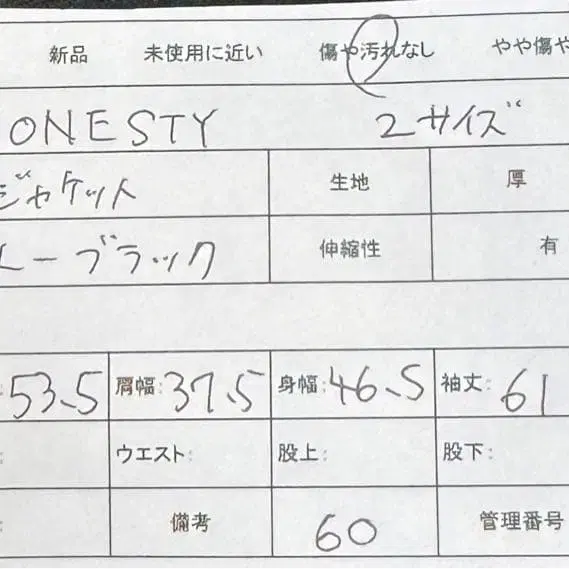 新品 未使用に近い 傷や汚れなし やや傷や
ONESTY 2サイズ
ジャケット 生地 厚
ーブラック 伸縮性 有
53.5 肩幅:37.5 身幅:46.5 袖丈:61
: ウエスト: 股上: 股下:
: 備考 60 管理番号